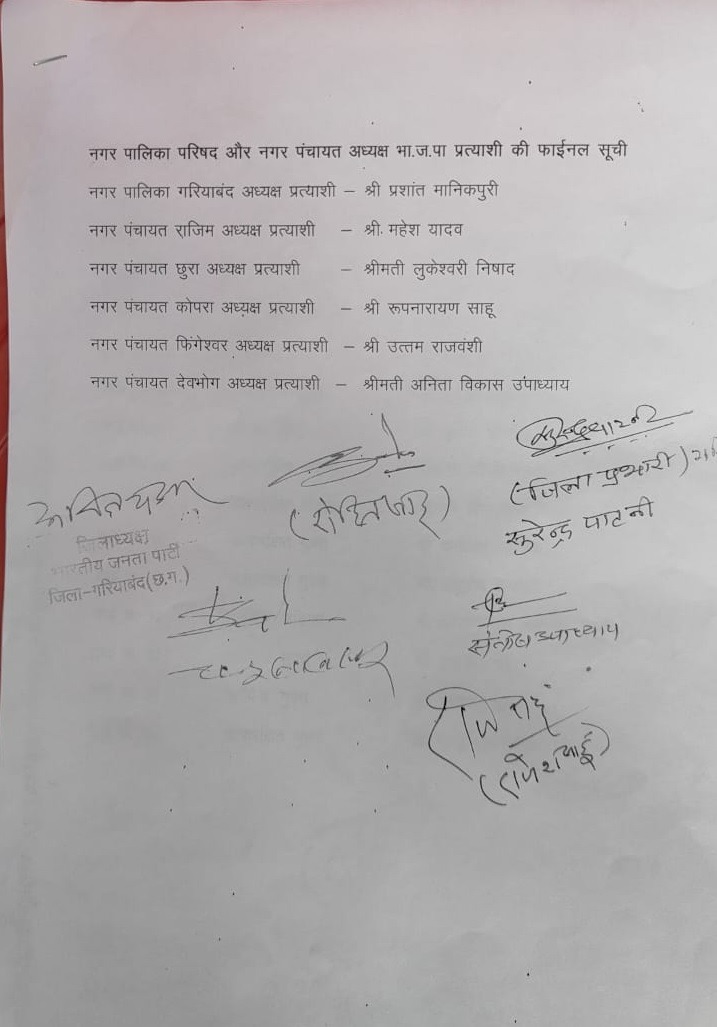 नगर पालिका परिषद और नगर पंचायत अध्यक्ष भा.ज.पा प्रत्याशी की फाईनल सूची
नगर पालिका गरियाबंद अध्यक्ष प्रत्याशी – श्री प्रशांत मानिकपुरी
नगर पंचायत राजिम अध्यक्ष प्रत्याशी – श्री. महेश यादव
नगर पंचायत छुरा अध्यक्ष प्रत्याशी – श्रीमती लुकेश्वरी निषाद
नगर पंचायत कोपरा अध्यक्ष प्रत्याशी – श्री रूपनारायण साहू
नगर पंचायत फिंगेश्वर अध्यक्ष प्रत्याशी – श्री उत्तम राजवंशी
नगर पंचायत देवभोग अध्यक्ष प्रत्याशी – श्रीमती अनिता विकास उपाध्याय
(जिला प्रभारी)
सुरेन्द्र पाटनी
जिलाध्यक्ष
भारतीय जनता पार्टी
जिला-गरियाबंद(छ.ग.)
उपाध्याय